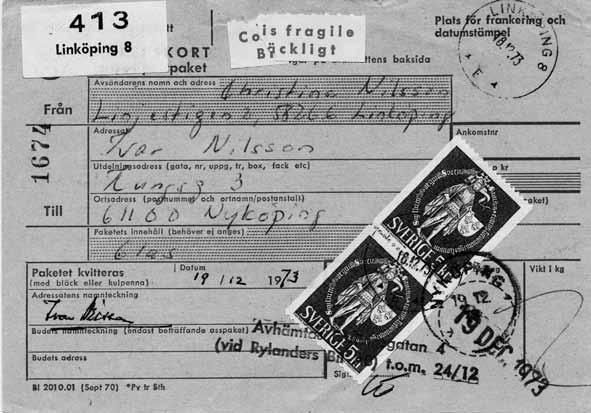 413
Linköping 8
Colis fragile
Bräckligt
Plats för frankering och
datumstämpel
LINKÖPING 8
18.12.73
E
KORT
paket
baksida
Från
Avsändarens namn och adress
Christina Nilsson
58266 Linköping
1674
Adressat
Ivar Nilsson
Ankomstnr
Utdelningsadress (gata, nr, uppg, tr, box, fack etc)
Kungsg 3
Till
Ortsadress (postnummer och ortnamn/postanstalt)
61100 Nyköping
Paketets innehåll (behöver ej anges)
Glas
SVERIGE 5
SVERIGE 5
Paketet kvitteras
(med bläck eller kulpenna)
Datum
19/12 1973
Vikt i kg
Adressatens namnteckning
NYKÖPING 1
19.12
19 DEC. 1973
Buds namnteckning (endast beträffande asspaket)
Avhämtas
gatan 4
(vid Rylanders
t.o.m. 24/12
Budets adress
Bl 2010.01 (Sept 70) *Pv tr Sth